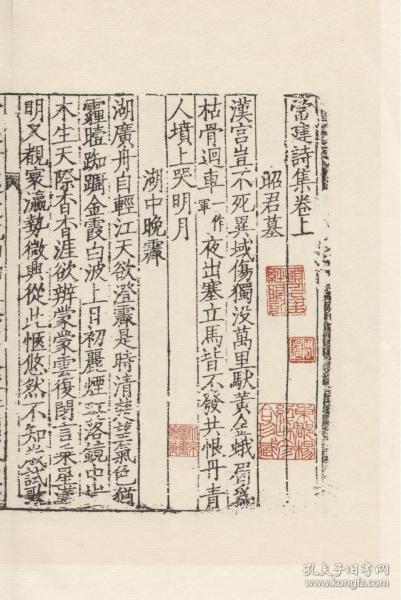 常建詩集卷上
昭君墓
漢宮豈不死異域傷獨没萬里馱黃金蛾眉爲
枯骨迴車一作軍夜出塞立馬皆不發共恨丹青
人墳上哭明月
湖中晚霽
湖廣舟自輕江天欲澄霽是時清楚望氣色猶
霾曀踟躕金霞白波上日初麗煙虹落鏡中
木生天際杳杳涯欲辨蒙蒙雲復閉言乘星漢
明又覩寰瀛勢微興從此愜悠然不知歲試歌
孔夫子旧书网
www.kongfz.com